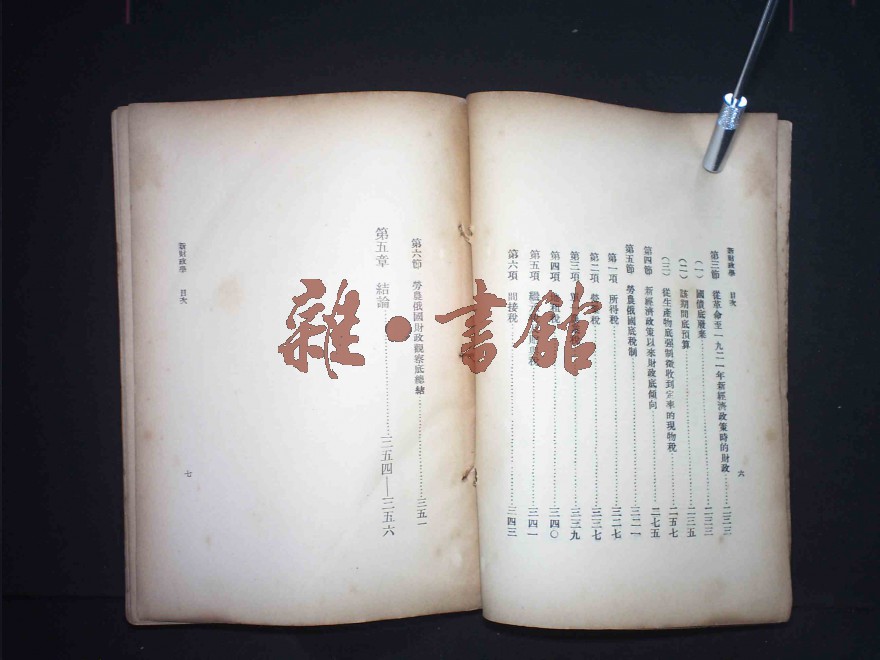 新財政學 目次
六
第三節 從革命至一九二一年新經濟政策時的財政 二三三
(一) 國債底廢棄 二三三
(二) 該期間底預算 二三五
(三) 從生產物底强制徵收到定率的現物稅 二五七
第四節 新經濟政策以來財政底傾向 二七五
第五節 勞農俄國底稅制 三二一
第一項 所得稅 三二七
第二項 營業稅 三三七
第三項 三三九
第四項 三四〇
第五項 三四一
第六項 間接稅 三四三
第六節 勞農俄國財政觀察底總結 三五一
第五章 結論 三五四——三五六
新財政學 目次
七
雜·書館